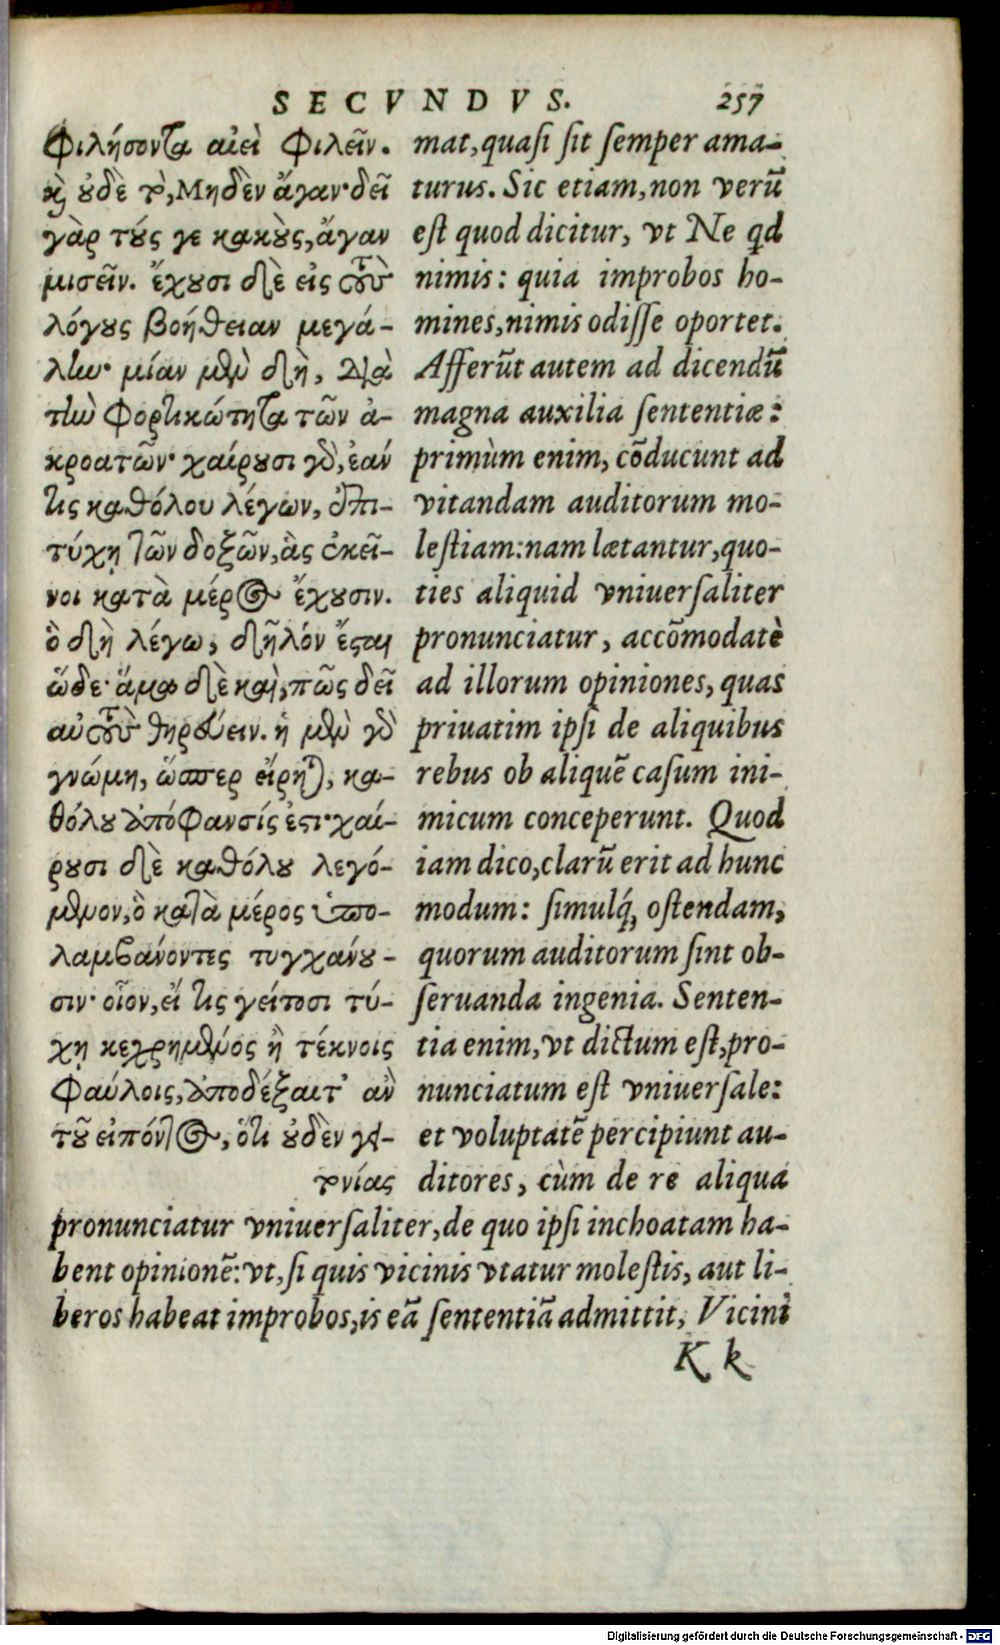 SECVNDVS. 257
φιλήσοντα αἰεὶ φιλεῖν.
κỳ ȣ̓δὲ τὸ, Μηδὲν ἄγαν· δεῖ
γὰρ τύς γε κακȣ̀ς, ἄγαν
μισεῖν. ἔχȣσι δὲ εἰς τοὺς
λόγȣς βοήθειαν μεγά-
λην· μίαν μὲν δὴ, διὰ
τὴν φορτικότητα τῶν ἀ-
κροατῶν· χαίρȣσι γὰρ, ἐάν
τις καθόλου λέγων, ἐπι-
τύχῃ τῶν δοξῶν, ἃς ἐκεῖ-
νοι κατὰ μέρος ἔχȣσιν.
ὃ δὴ λέγω, δῆλόν ἔςαι
ὧδε· ἅμα δὲ καὶ, πῶς δεῖ
αὐτοὺς θηρεύειν. ἡ μὲν γὰρ
γνώμη, ὥσπερ εἴρηται, κα-
θόλȣ ἀπόφανσίς ἐςι· χαί-
ρȣσι δὲ καθόλȣ λεγό-
μενον, ὃ κατὰ μέρος ὑπο-
λαμβάνοντες τυγχάνȣ-
σιν· οἷον, εἴ τις γείτοσι τύ-
χῃ κεχρημένος ἢ τέκνοις
φαύλοις, ἀποδέξαιτ' ἂν
τȣ͂ εἰπόντος, ὅτι ȣ̓δὲν γει-
τονίας
mat, quaſi ſit ſemper ama-
turus. Sic etiam, non verũ
eſt quod dicitur, vt Ne qd
nimis: quia improbos ho-
mines, nimis odiſſe oportet.
Afferũt autem ad dicendũ
magna auxilia ſententiæ:
primùm enim, cõducunt ad
vitandam auditorum mo-
leſtiam: nam lætantur, quo-
ties aliquid vniuerſaliter
pronunciatur, accõmodatè
ad illorum opiniones, quas
priuatim ipſi de aliquibus
rebus ob aliquẽ caſum ini-
micum conceperunt. Quod
iam dico, clarũ erit ad hunc
modum: ſimulq́, oſtendam,
quorum auditorum ſint ob-
ſeruanda ingenia. Senten-
tia enim, vt dictum eſt, pro-
nunciatum eſt vniuerſale:
et voluptatẽ percipiunt au-
ditores, cùm de re aliqua
pronunciatur vniuerſaliter, de quo ipſi inchoatam ha-
bent opinionẽ: vt, ſi quis vicinis vtatur moleſtis, aut li-
beros habeat improbos, is eã ſententiã admittit, Vicini
K k
Digitalisierung gefördert durch die Deutsche Forschungsgemeinschaft - DFG